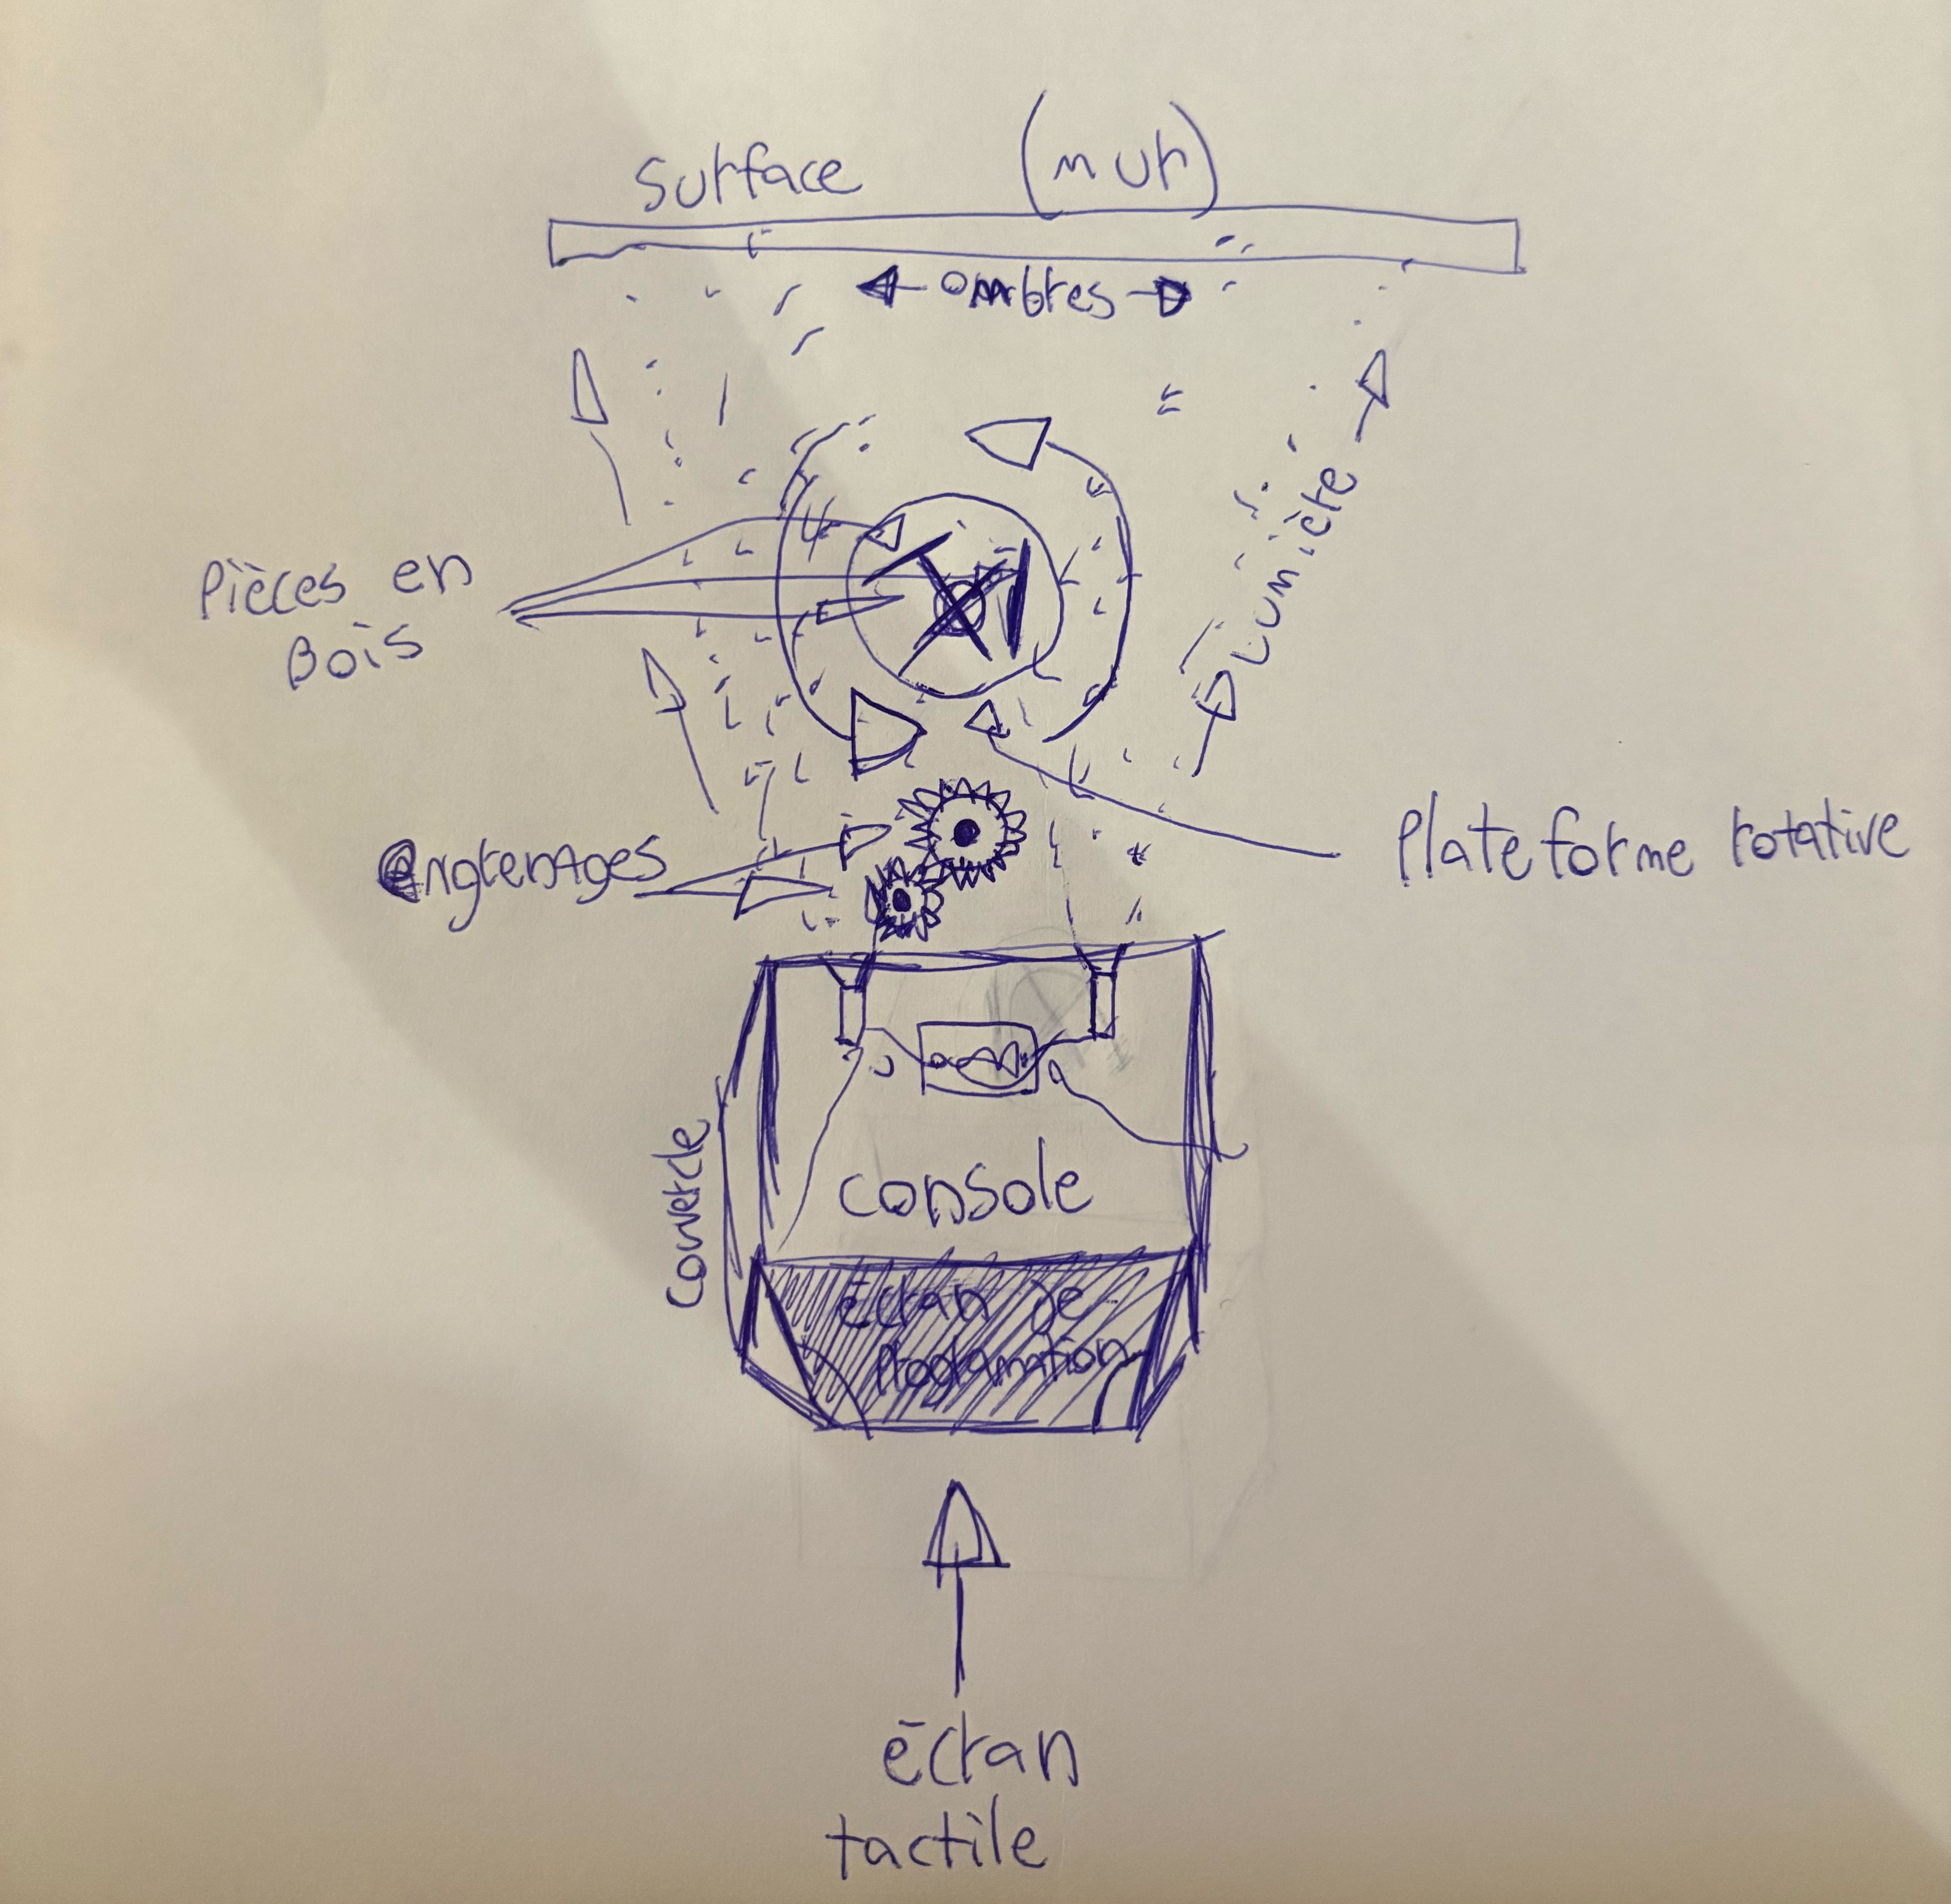 Surface (mur)
ombres
Lumière
Pièces en
Bois
engrenages
Plateforme rotative
console
Couvercle
Écran de
Programation
écran
tactile